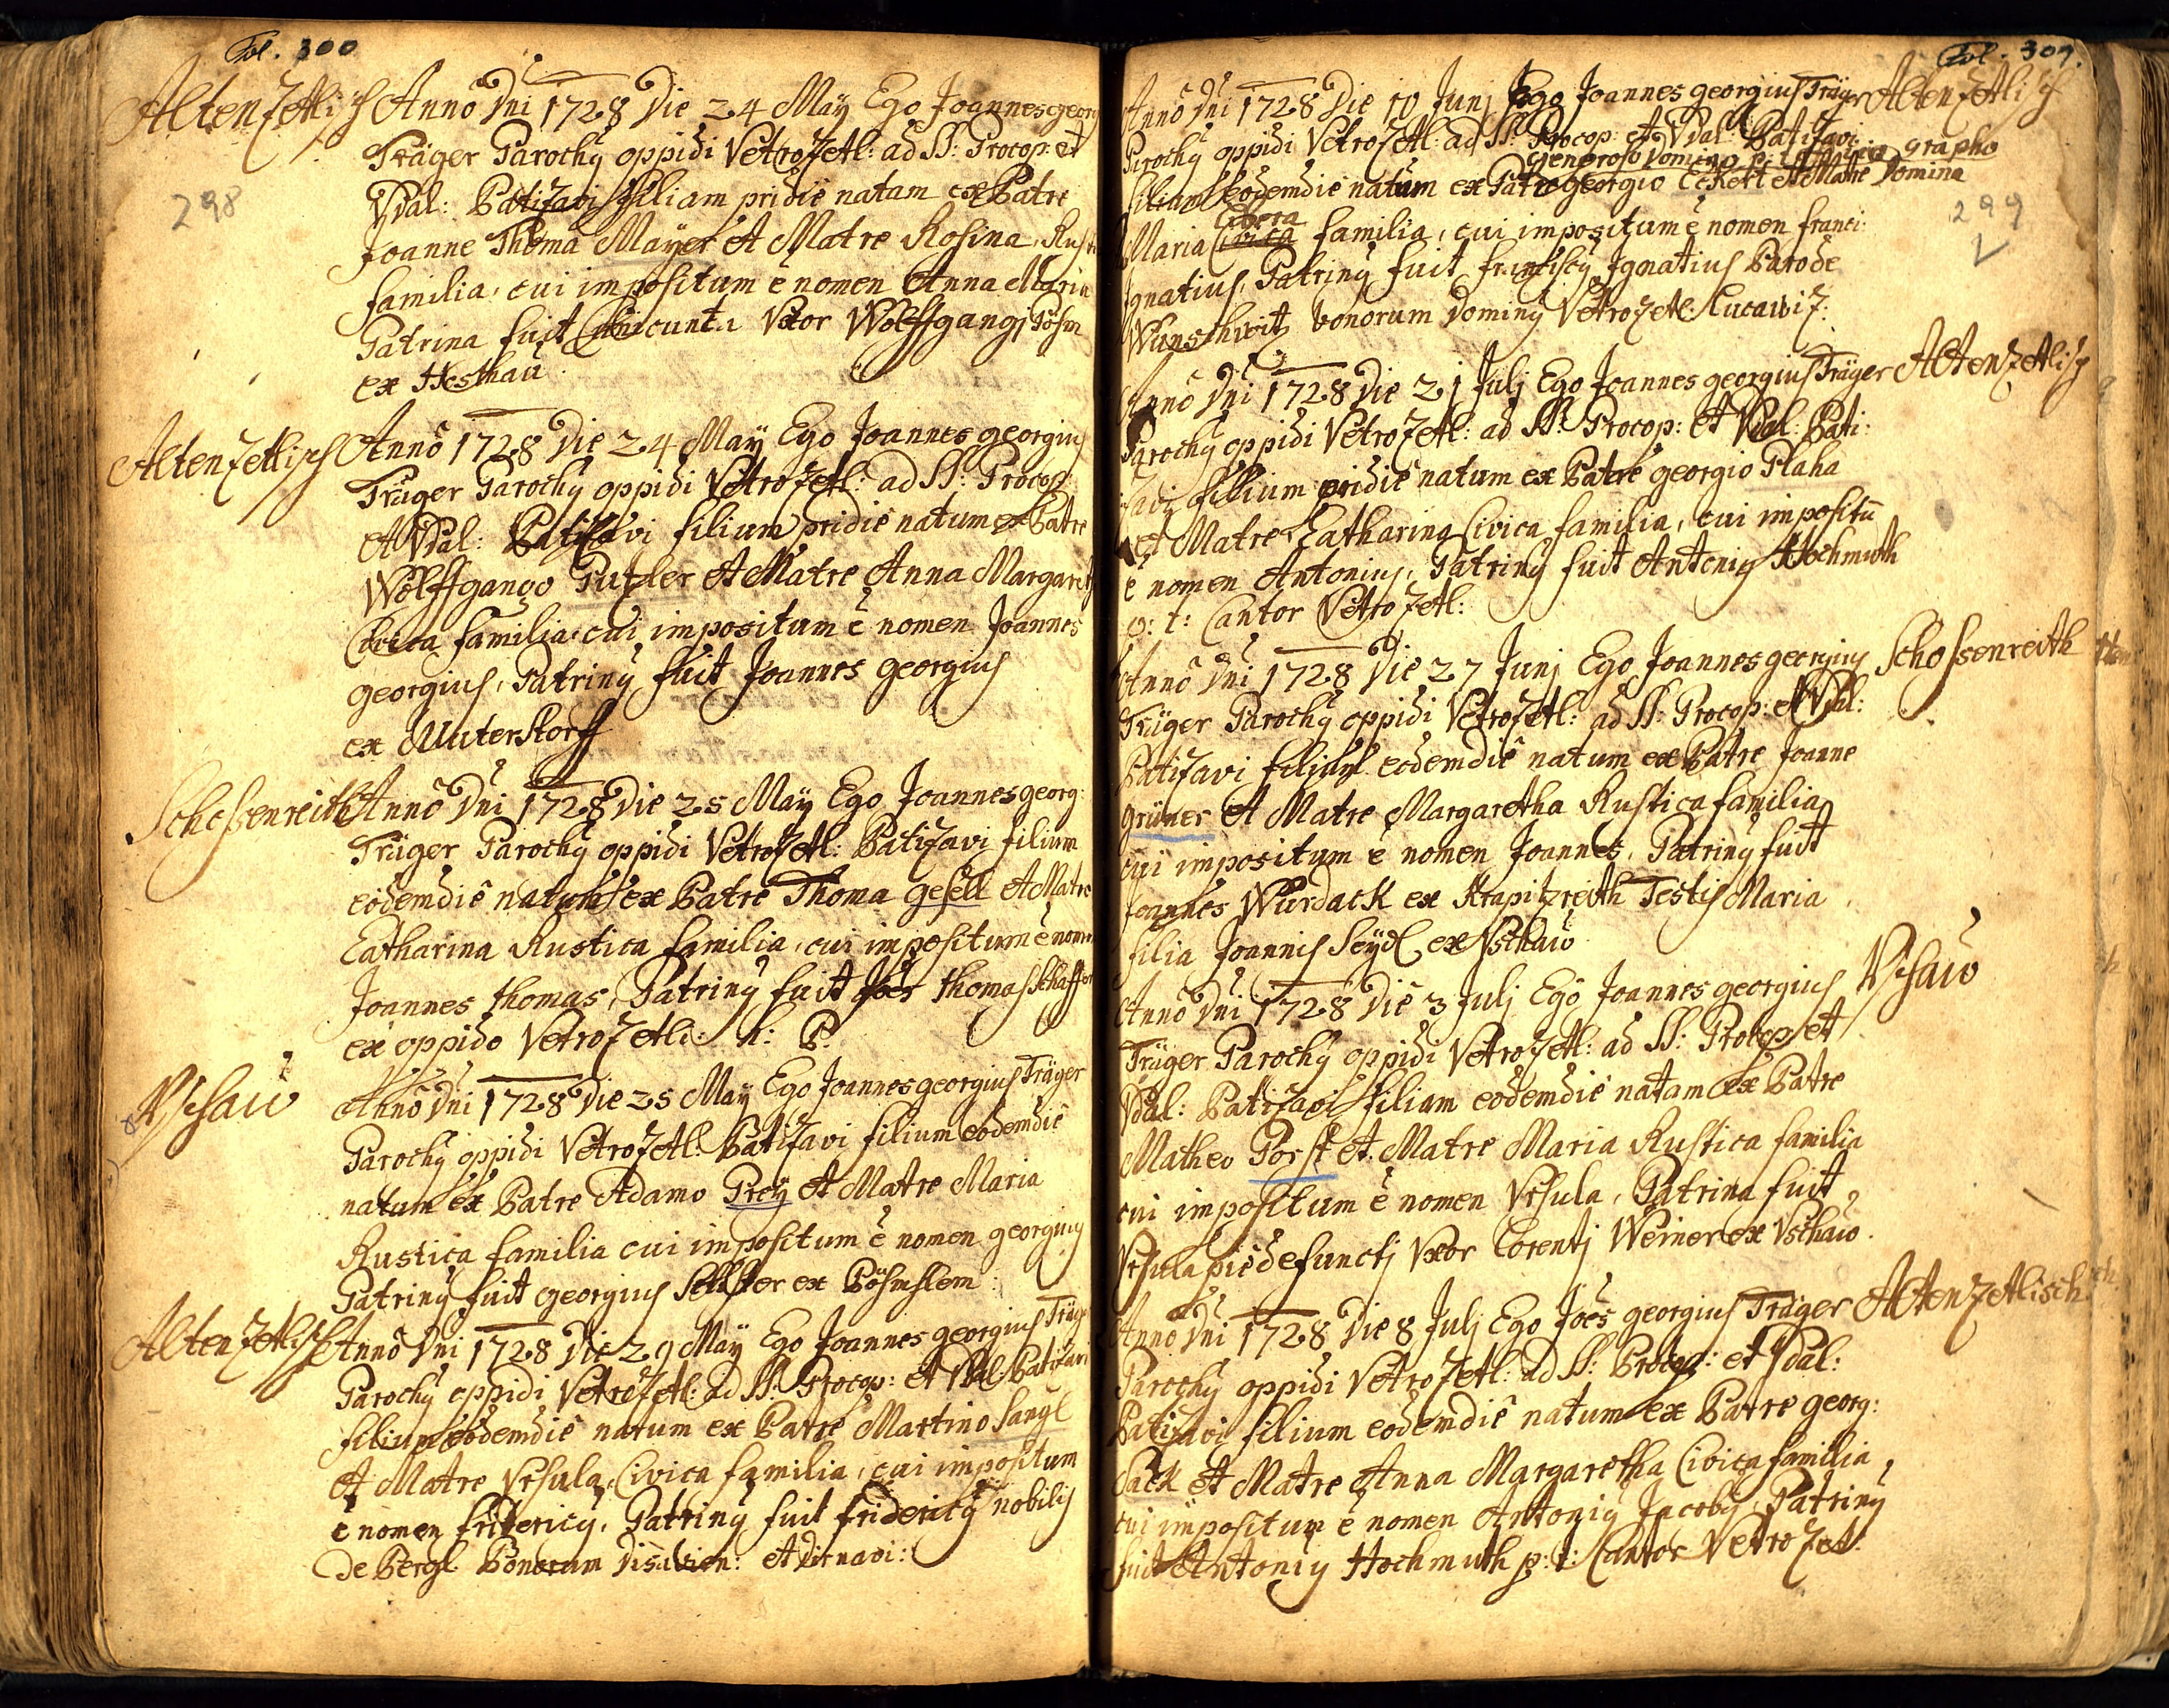 Fol. 300
298
AltenZetlisch Anno Dni 1728 Die 24 May Ego Joannes georg
Träger Parochy oppidi VetroZetl: ad SS: Procop: et
Vdal: Batizavi filiam pridie natam ex Patre
Joanne Thoma Mayer et Matre Rosina, Rust
familia, cui impositum e nomen Anna Maria
Patrina fuit Uxor Wolffgangj Böhm
ex Hesthau
Altenzetlisch Anno 1728 Die 24 May Ego Joannes georgius
Träger Parochy oppidi VetroZetl: ad SS: Procop:
et Vdal: Batizavi filium pridie natum ex Patre
Wolffgango Putzler et Matre Anna Margareth
Civica familia, cui impositum e nomen Joannes
georgius, Patriny fuit Joannes georgius
ex Muterstorff
Schossenreith Anno Dni 1728 Die 25 May Ego Joannes georg:
Träger Parochy oppidi VetroZetl: Batizavi filium
eodemdie natum ex Patre Thoma gesell et Matre
Catharina Rustica familia, cui impositum e nomen
Joannes thomas, Patriny fuit Joes thomas
ex oppido VetroZetli: n: P:
Vschau Anno Dni 1728 Die 25 May Ego Joannes georgius Träger
Parochy oppidi VetroZetl: Batizavi filium eodemdie
natum ex Patre Adamo Prey et Matre Maria
Rustica familia cui impositum e nomen georgius
Patriny fuit georgius ex Böhmslem:
AltenZetlisch Anno Dni 1728 Die 29 May Ego Joannes georgius Träger
Parochy oppidi VetroZetl: ad SS: Procop: et Vdal: Batizavi
filium eodemdie natum ex Patre Martino Sangl
et Matre Vrsula, Civica familia, cui impositum
e nomen fridericy, Patriny fuit fridericy nobilis
De Bergl Bonorum et Dirnavi:
Fol. 301.
299
Anno Dni 1728 Die 10 Junj Ego Joannes georgius Träger AltenZetlisch
Parochy oppidi VetroZetl: ad SS: Procop: et Vdal: Batizavi
generoso Domino grapho
filium eodemdie natum ex Patre georgio Eckert et Matre Domina
Libera
Maria Civica familia, cui impositum e nomen franci:
Ignatius, Patriny fuit franciscy Ignatius Barode
Wunschwitz bonorum Dominy VetroZetl: Lucawiz:
Anno Dni 1728 Die 21 Julj Ego Joannes georgius Träger AltenZetlisch
Parochy oppidi VetroZetl: ad SS: Procop: et Vdal: Bati:
zavi filium pridie natum ex Patre georgio Plaha
et Matre Catharina Civica familia, cui impositu
e nomen Antonius, Patriny fuit Antoniy Hochmuth
p: t: Cantor VetroZetl:
Anno Dni 1728 Die 27 Junj Ego Joannes georgius Schossenreith
Träger Parochy oppidi VetroZetl: ad SS: Procop: et Vdal:
Batizavi filium eodemdie natum ex Patre Joanne
grüner et Matre Margaretha Rustica familia
cui impositum e nomen Joannes, Patriny fuit
Joannes Wurdack ex Krapitzreith Testis Maria
filia Joannis Seydl ex Vschau
Anno Dni 1728 Die 3 Julj Ego Joannes georgius Vschau
Träger Parochy oppidi VetroZetl: ad SS: Procop: et
Vdal: Batizavi filiam eodemdie natam ex Patre
Matheo Porst et Matre Maria Rustica familia
cui impositum e nomen Vrsula, Patrina fuit
Vrsula pie defunctj Uxor Lorentj Weiner ex Vschau.
Anno Dni 1728 Die 8 Julj Ego Joes georgius Träger AltenZetlisch
Parochy oppidi VetroZetl: ad SS: Procop: et Vdal:
Batizavi filium eodemdie natum ex Patre georg:
Sack et Matre Anna Margaretha Civica familia,
cui impositum e nomen Antoniy Jacoby, Patriny
fuit Antoniy Hochmuth p: t: Cantor VetroZetl: